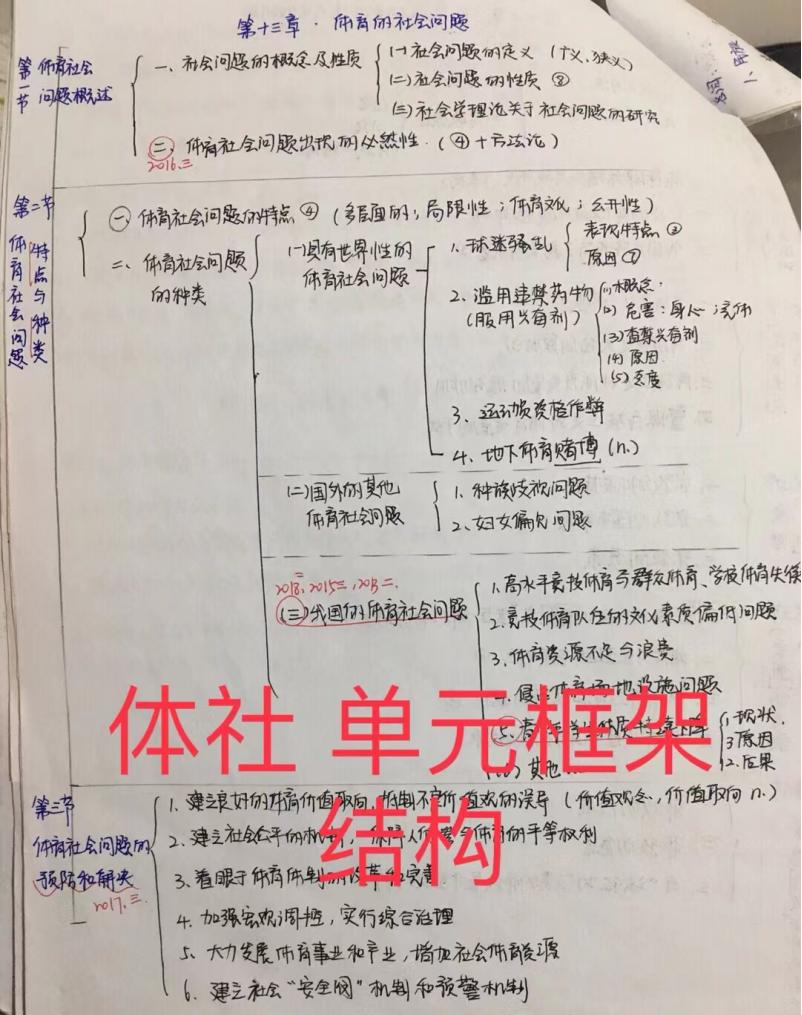 第十三章·体育的社会问题
第一节 体育社会问题概述
一、社会问题的概念及性质
(一)社会问题的定义（广义、狭义）
(二)社会问题的性质③
(三)社会学理论关于社会问题的研究
二、体育社会问题出现的必然性.（④+方法论）
2016.三
第二节 体育社会问题特点与种类
一、体育社会问题的特点④（多层面的；局限性；体育文化；公开性）
二、体育社会问题的种类
(一)具有世界性的体育社会问题
1、球迷骚乱
表现特点③
原因⑦
2、滥用违禁药物（服用兴奋剂）
(1)概念.
(2)危害：身心；流体
(3)查禁兴奋剂
(4)原因
(5)态度
3、运动员资格作弊
4、地下体育赌博(n.)
(二)国外的其他体育社会问题
1、种族歧视问题
2、妇女偏见问题
2018.二 2015二，2013二.
(三)我国的体育社会问题
1、高水平竞技体育与群众体育、学校体育失衡
2.竞技体育队伍的文化素质偏低问题
3、体育资源不足与浪费
4、侵占体育场地设施问题
5、青少年学生体质持续下降
1.现状.
3原因
2.后果
其他
体社 单元框架
结构
第三节 体育社会问题的预防和解决
2017.三.
1、建立良好的体育价值取向，抵制不良价值观的误导（价值观念，价值取向 n.）
2、建立社会公平的机制，保障人们参与体育的平等权利
3、着眼于体育体制的改革和完善
4、加强宏观调控，实行综合治理
5、大力发展体育事业和产业，增加社会体育资源
6、建立社会“安全阀”机制和预警机制